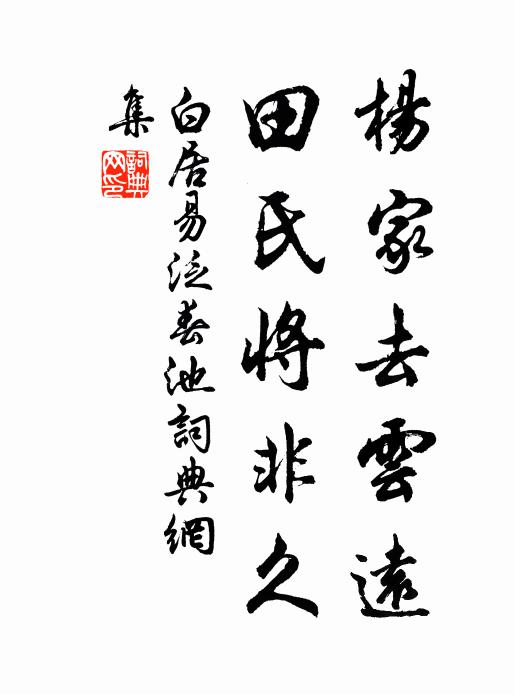 楊家去雲遠
田氏將非久
白居易泛春池詞典網
集
詞典網印